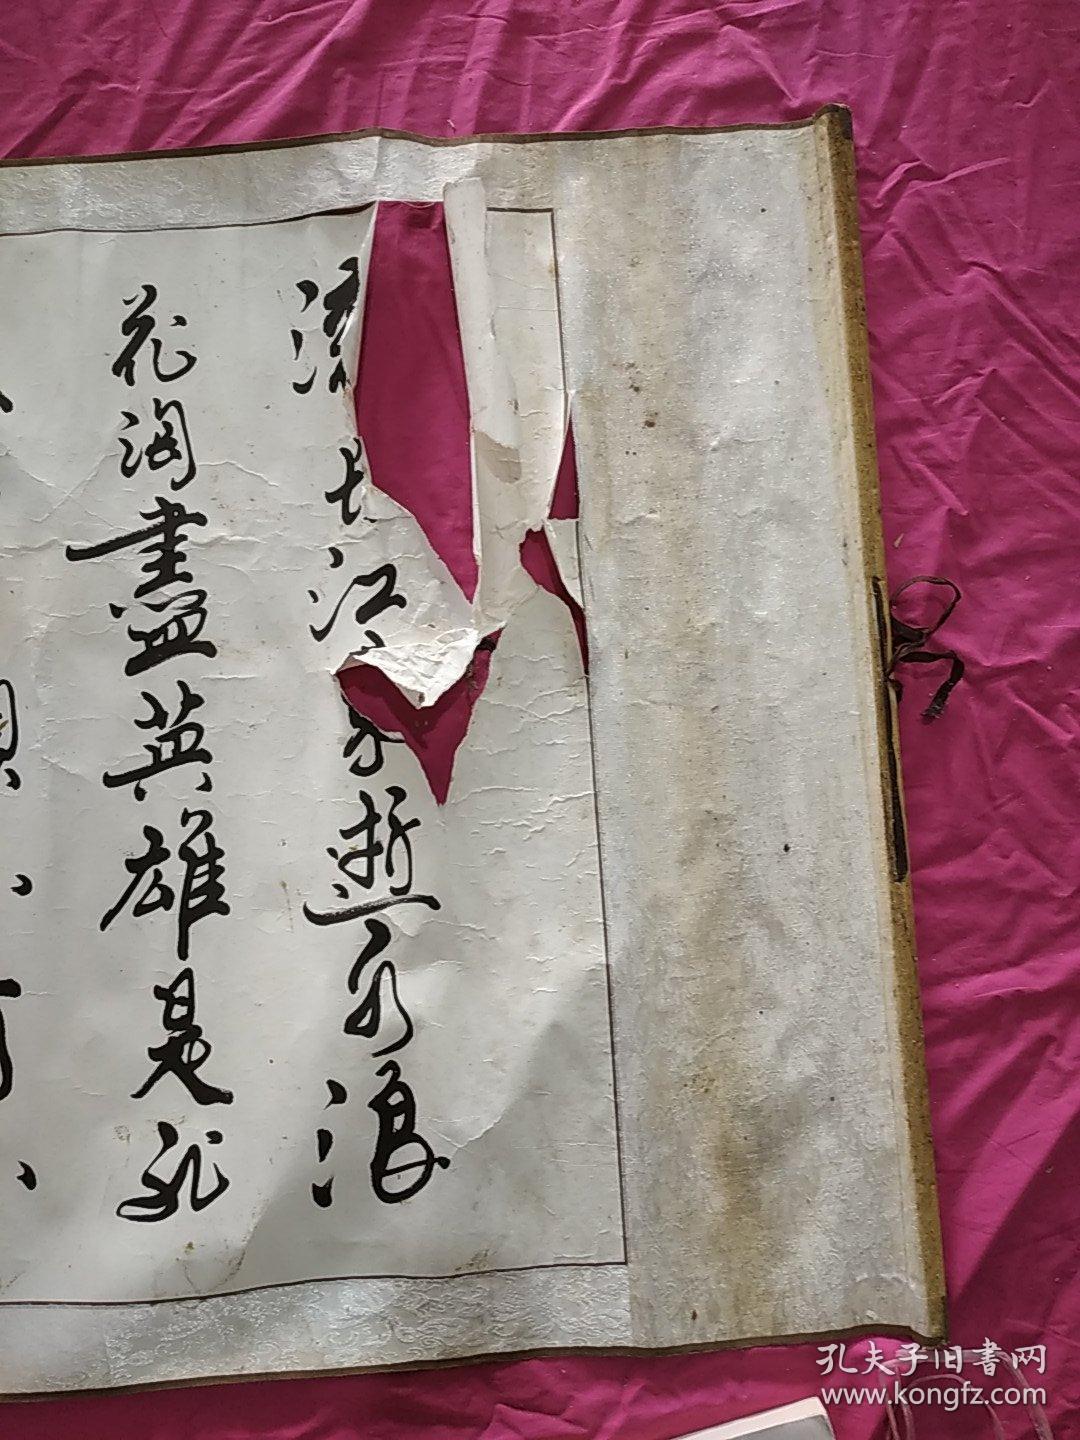 滚长江东逝水浪
花淘盡英雄是非
孔夫子旧書网
www.kongfz.com